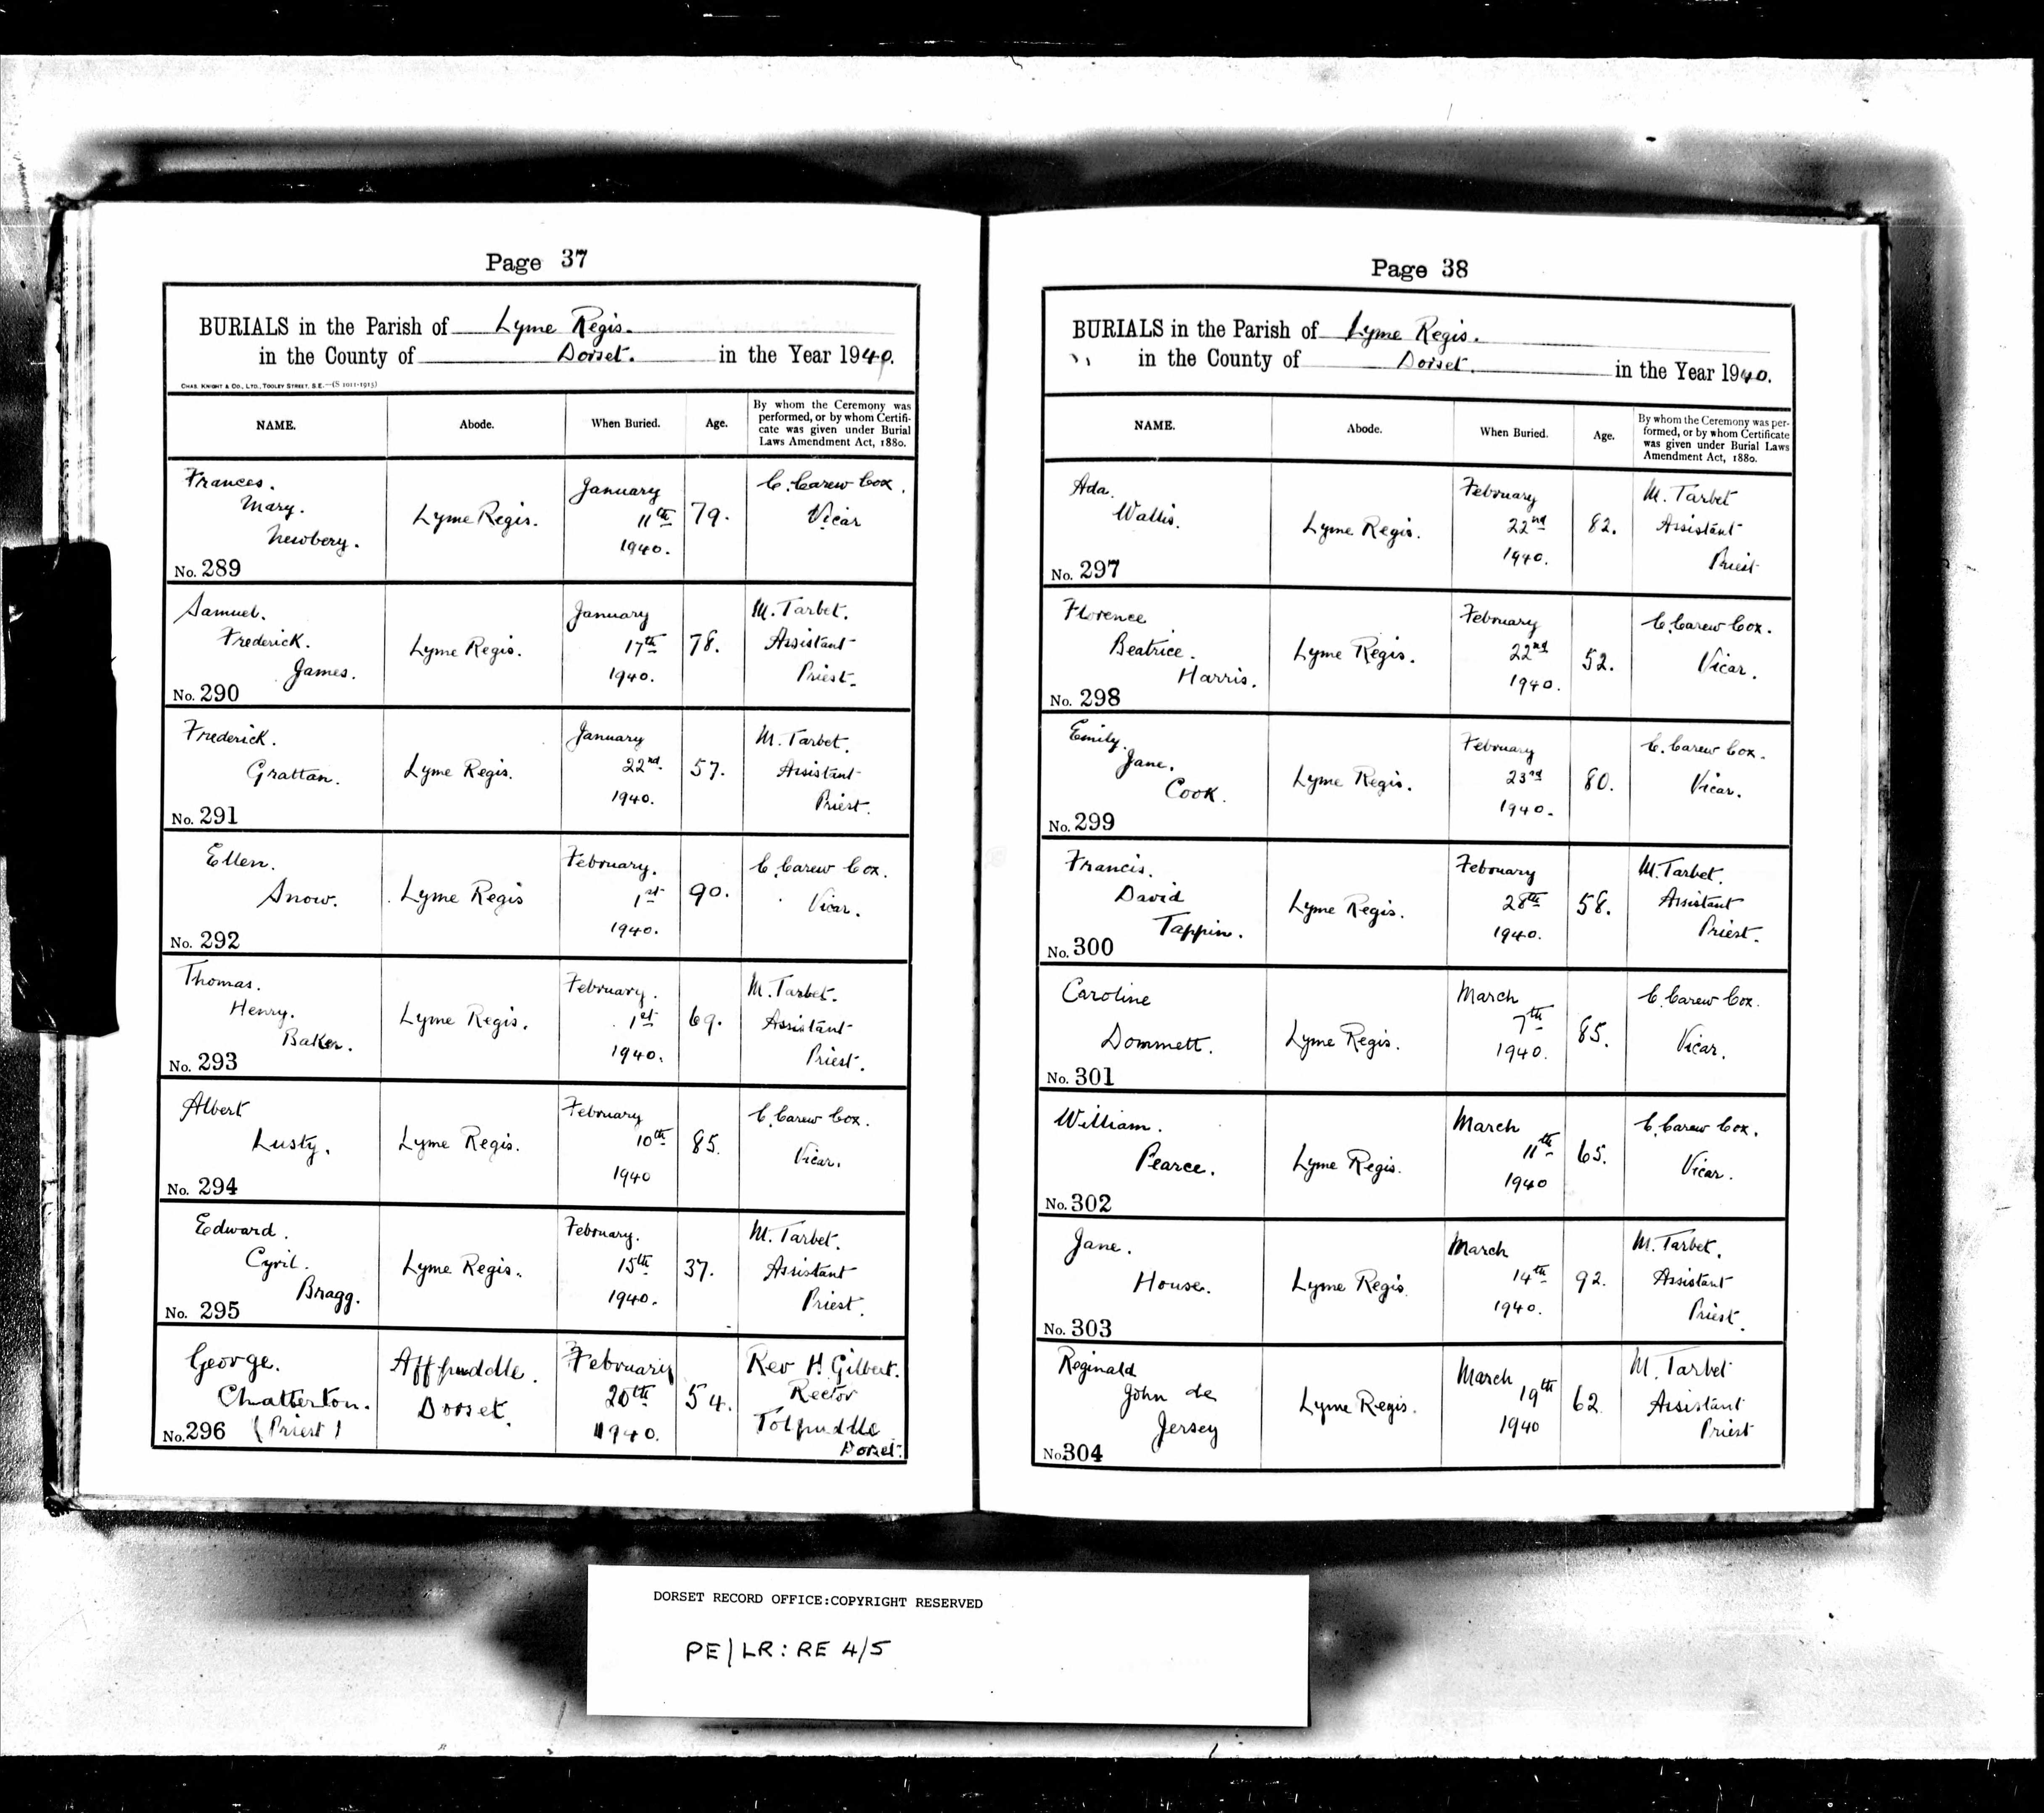 Page 37
BURIALS in the Parish of Lyme Regis.
in the County of Dorset. in the Year 1940.
CHAS. KNIGHT & CO., LTD., TOOLEY STREET, S.E.—(S 1011-1915)
NAME. Abode. When Buried. Age. By whom the Ceremony was performed, or by whom Certificate was given under Burial Laws Amendment Act, 1880.
Frances.
Mary.
Newbery.
No. 289
Lyme Regis.
January
11th
1940.
79.
C. Carew Cox.
Vicar
Samuel.
Frederick.
James.
No. 290
Lyme Regis.
January
17th
1940.
78.
M. Tarbet.
Assistant
Priest.
Frederick.
Grattan.
No. 291
Lyme Regis.
January
22nd.
1940.
57.
M. Tarbet.
Assistant
Priest.
Ellen.
Snow.
No. 292
Lyme Regis
February.
1st
1940.
90.
C. Carew Cox.
Vicar.
Thomas.
Henry.
Baker.
No. 293
Lyme Regis.
February.
1st
1940.
69.
M. Tarbet.
Assistant
Priest.
Albert
Lusty.
No. 294
Lyme Regis.
February
10th
1940
85.
C. Carew Cox.
Vicar.
Edward.
Cyril.
Bragg.
No. 295
Lyme Regis.
February.
15th
1940.
37.
M. Tarbet.
Assistant
Priest.
George.
Chatterton.
(Priest)
No. 296
Affpuddle.
Dorset.
February
20th
1940.
54.
Rev H. Gilbert.
Rector
Tolpuddle
Dorset.
Page 38
BURIALS in the Parish of Lyme Regis.
in the County of Dorset. in the Year 1940.
NAME. Abode. When Buried. Age. By whom the Ceremony was performed, or by whom Certificate was given under Burial Laws Amendment Act, 1880.
Ada.
Wallis.
No. 297
Lyme Regis.
February
22nd
1940.
82.
M. Tarbet
Assistant
Priest
Florence
Beatrice.
Harris.
No. 298
Lyme Regis.
February
22nd
1940.
52.
C. Carew Cox.
Vicar.
Emily.
Jane.
Cook.
No. 299
Lyme Regis.
February
23rd
1940.
80.
C. Carew Cox.
Vicar.
Francis.
David
Tappin.
No. 300
Lyme Regis.
February
28th
1940.
58.
M. Tarbet.
Assistant
Priest.
Caroline
Dommett.
No. 301
Lyme Regis.
March
7th
1940.
85.
C. Carew Cox.
Vicar.
William.
Pearce.
No. 302
Lyme Regis.
March
11th
1940
65.
C. Carew Cox.
Vicar.
Jane.
House.
No. 303
Lyme Regis.
March
14th
1940.
92.
M. Tarbet.
Assistant
Priest.
Reginald
John de
Jersey
No. 304
Lyme Regis.
March
19th
1940
62.
M. Tarbet
Assistant
Priest
DORSET RECORD OFFICE:COPYRIGHT RESERVED
PE/LR: RE 4/5